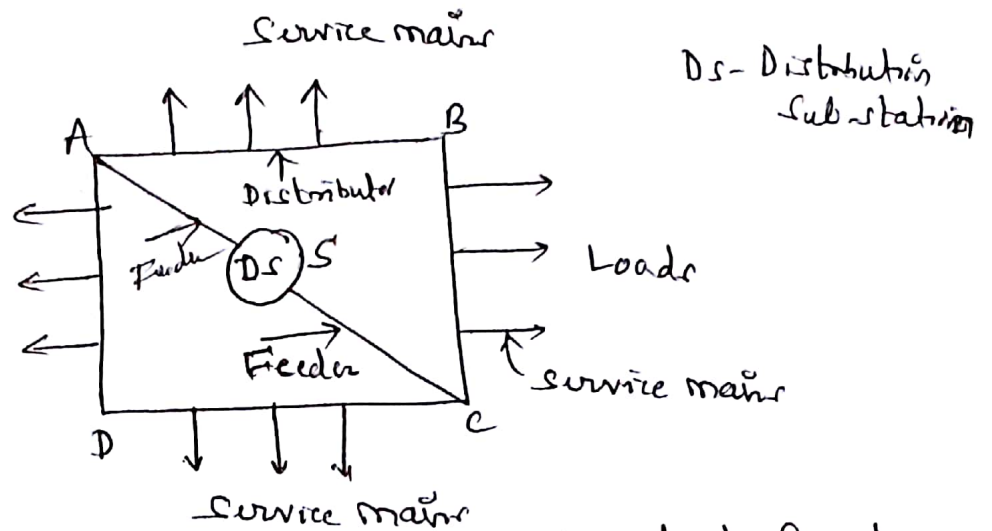 Service mains
Ds - Distribution
Sub-station
A
B
Distributor
Feeder
DS S
Loads
Feeder
Service mains
D
C
Service mains